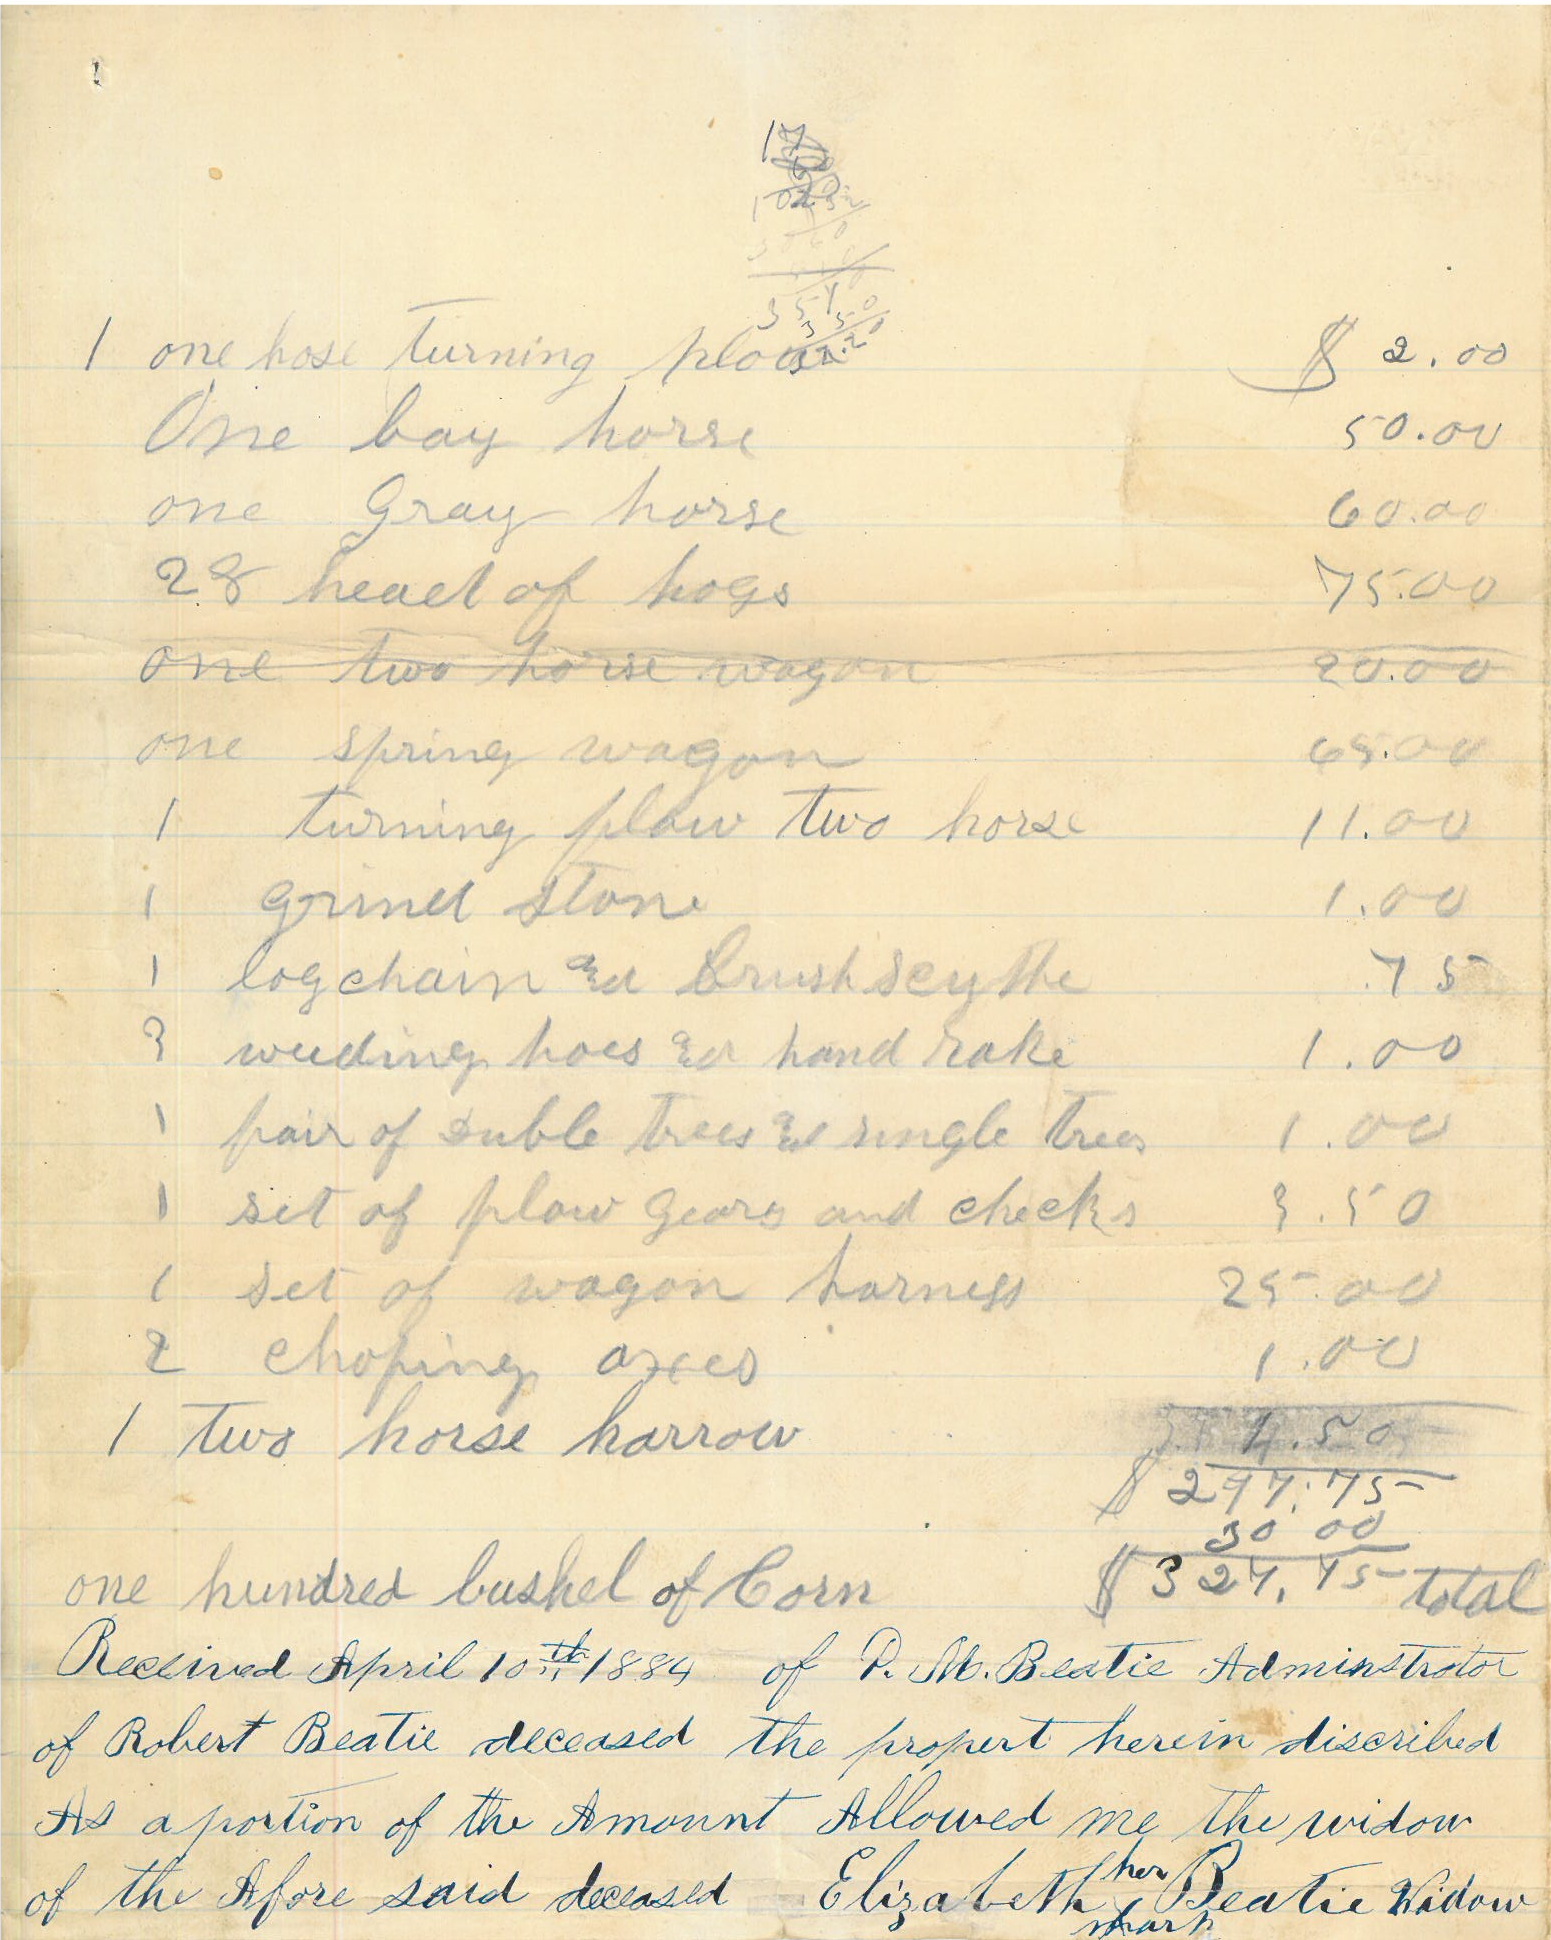 17
1 one hose turning plow $ 2.00
One bay horse 50.00
one Gray horse 60.00
28 head of hogs 75.00
one two horse wagon 20.00
one spring wagon 65.00
1 turning plow two horse 11.00
1 grind stone 1.00
1 log chain and brush scythe .75
3 weeding hoes and hand rake 1.00
1 pair of duble trees and single trees 1.00
1 set of plow gears and checks 3.50
1 set of wagon harness 25.00
2 choping axes 1.00
1 two horse harrow 4.50
$ 297.75
30 00
one hundred bushel of Corn $ 327.75 total
Received April 10th 1884 of P. M. Beatie Adminstrator
of Robert Beatie deceased the propert herein discribed
As a portion of the Amount Allowed me the widow
of the Afore said deceased Elizabeth her x mark Beatie Widow